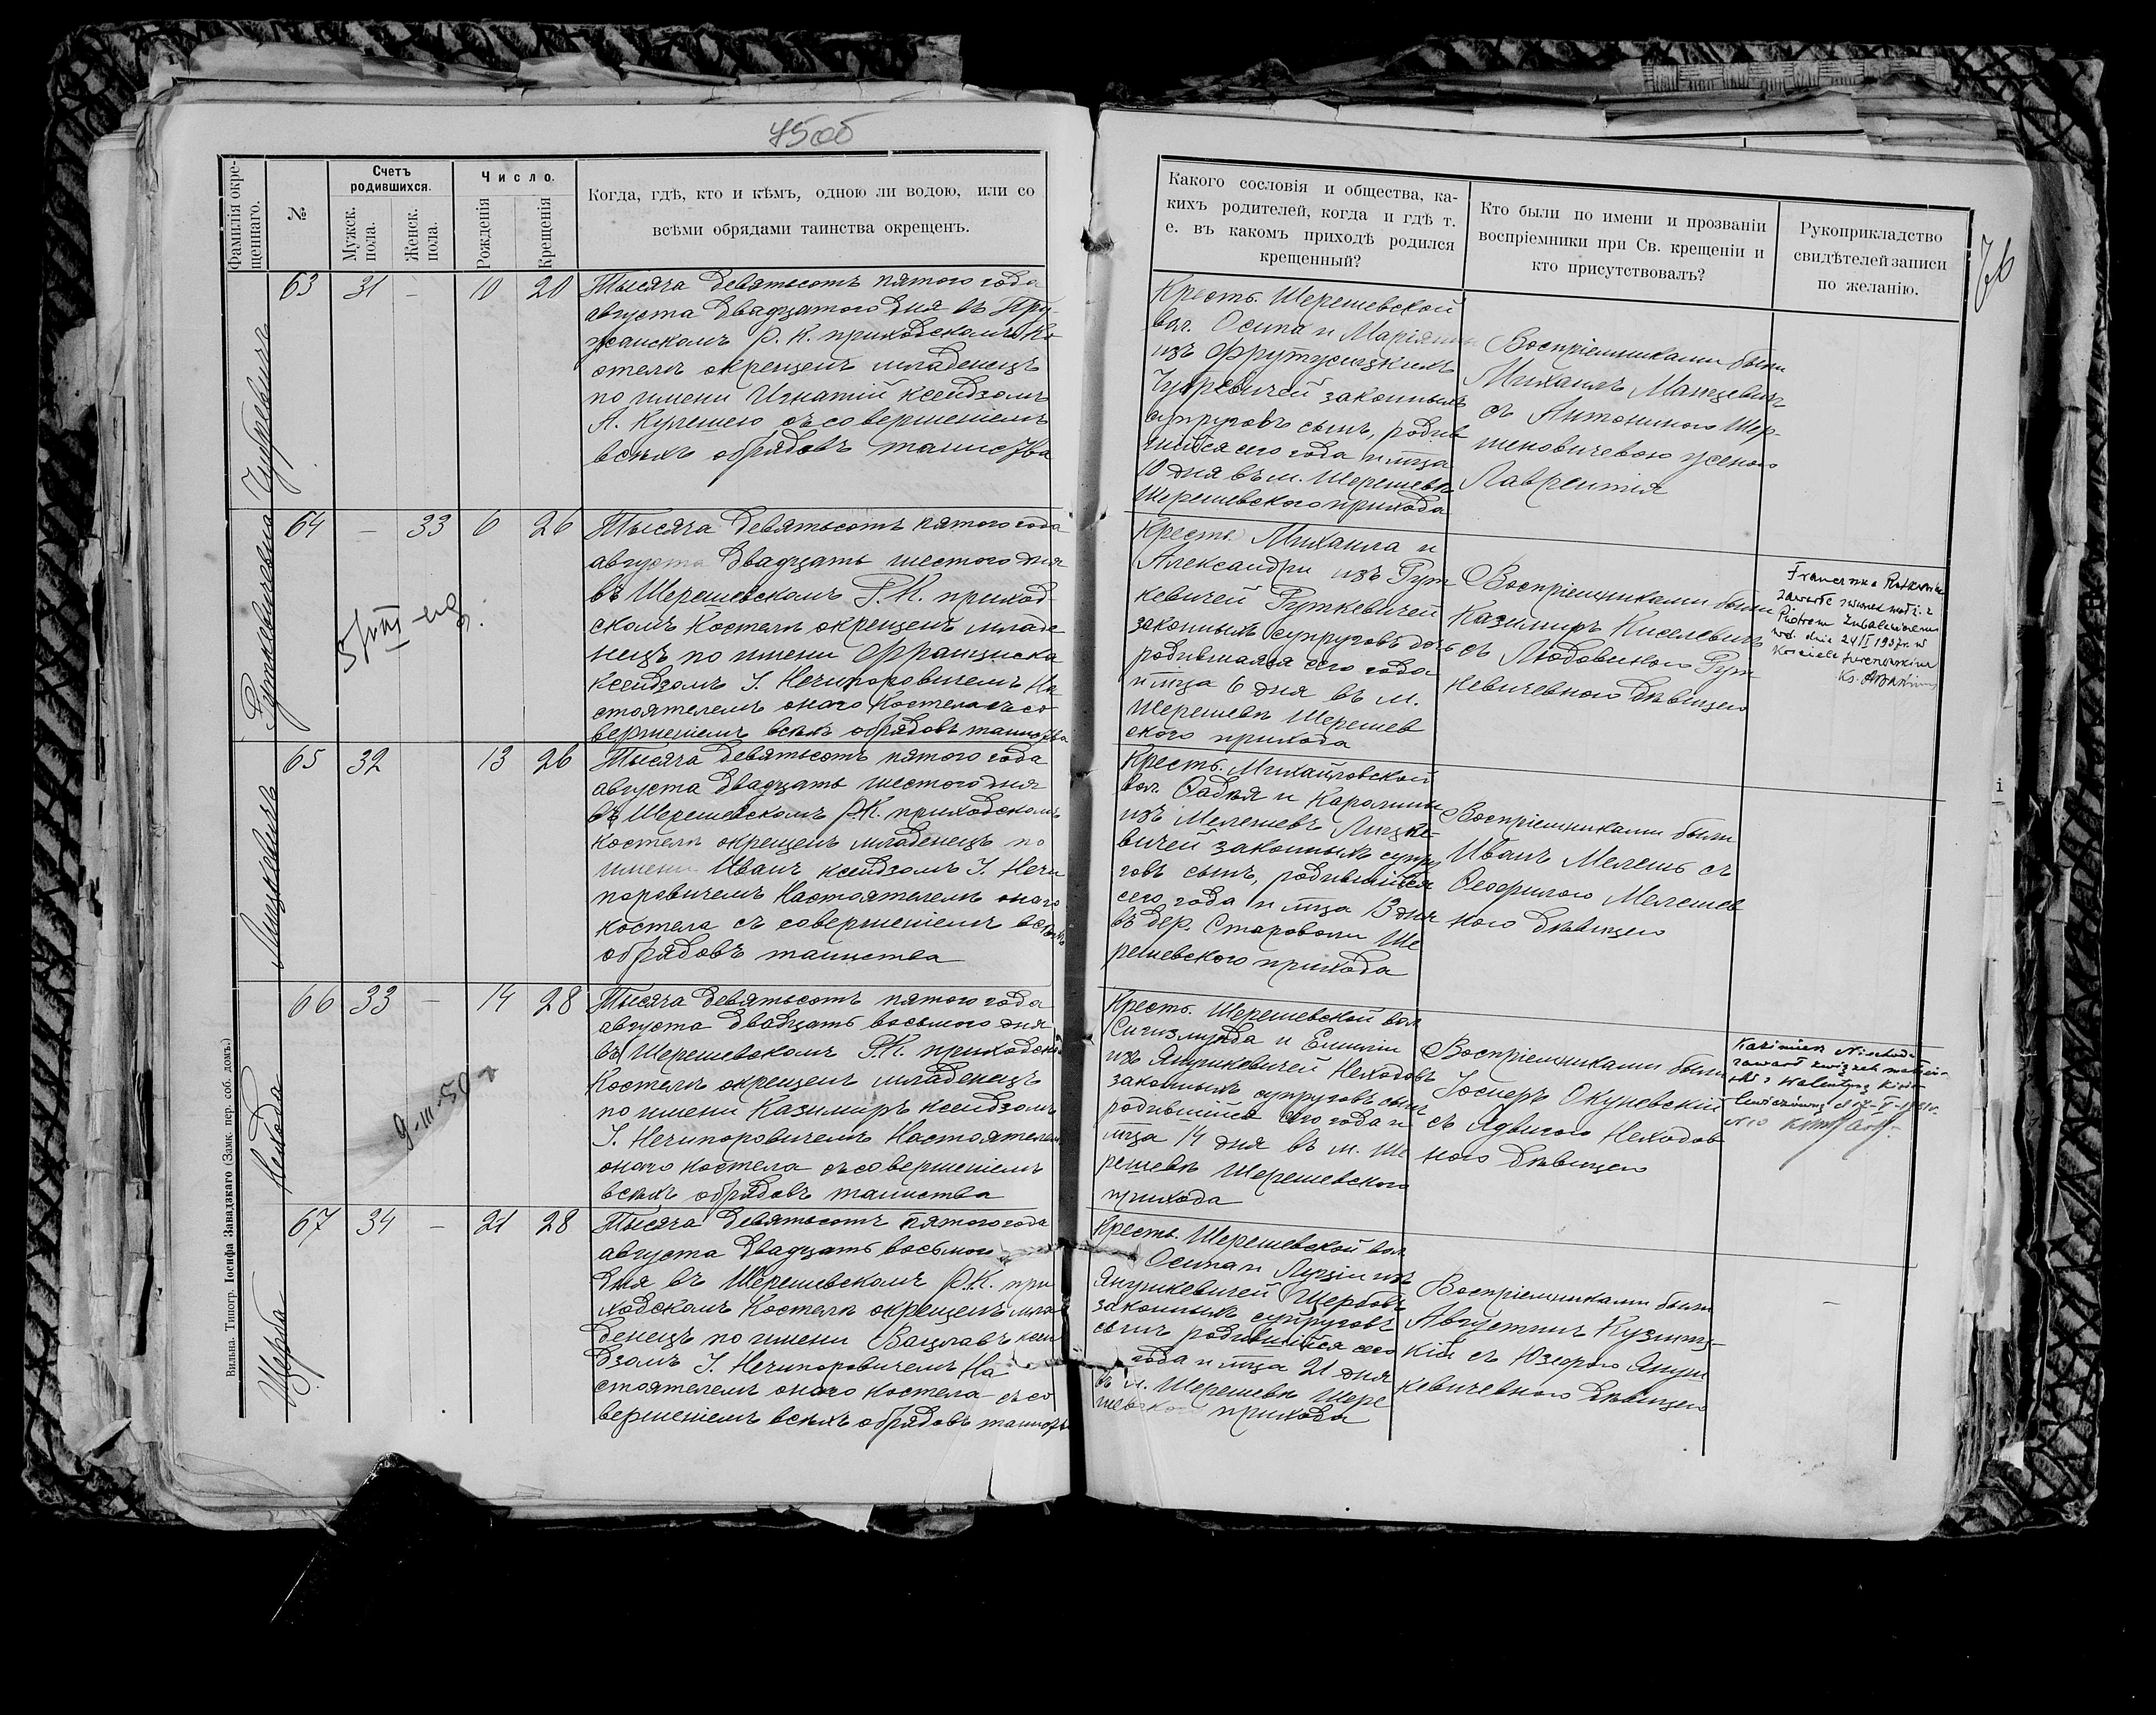 75об
Фамилія окре-
щеннаго.
№
Счетъ
родившихся.
Мужск.
пола.
Женск.
пола.
Число.
Рожденія
Крещенія
Когда, гдѣ, кто и кѣмъ, одною ли водою, или со
всѣми обрядами таинства окрещенъ.
63 31 – 10 20
Тысяча девятьсотъ пятого года
августа двадцатого дня въ Пру-
жанскомъ Р. К. приходскомъ Ко
стелѣ окрещенъ младенецъ
по имени Игнатій ксендзомъ
А. Кулешею съ совершеніемъ
всѣхъ обрядовъ таинства
Руткевичевна
64 – 33 6 26
Тысяча девятьсотъ пятого года
августа двадцать шестого дня
въ Шерешевскомъ Р. К. приход
скомъ Костелѣ окрещенъ младе
нецъ по имени Францишка
Ксендзомъ І. Нечипоровичемъ На
стоятелемъ оного Костела съ со
вершеніемъ всѣхъ обрядовъ таинства
Лицкевичъ
65 32 13 26
Тысяча девятьсотъ пятого года
августа двадцать шестого дня
въ Шерешевскомъ Р.К. приходскомъ
Костелѣ окрещенъ младенецъ по
имени Иванъ ксендзомъ І. Нечи
поровичемъ Настоятелемъ оного
костела съ совершеніемъ всѣхъ
обрядовъ таинства
Нехода
66 33 – 14 28
9-III-50 г
Тысяча девятьсотъ пятого года
августа двадцать восьмого дня
въ Шерешевскомъ Р.К. приходском
Костелѣ окрещенъ младенецъ
по имени Казимиръ ксендзомъ
І. Нечипоровичемъ Настоятелем
оного костела съ совершеніемъ
всѣхъ обрядовъ таинства
Щерба
67 34 – 21 28
Тысяча девятьсотъ пятого года
августа двадцать восьмого
дня въ Шерешевскомъ Р.К. при
ходскомъ Костелѣ окрещенъ мла
денецъ по имени Вацлавъ ксен
дзомъ І. Нечипоровичемъ На
стоятелемъ оного костела съ со
вершеніемъ всѣхъ обрядовъ таинства
Вильна. Типогр. Іосифа Завадзкаго (Замк. пер. соб. домъ.)
76
Какого сословія и общества, ка-
кихъ родителей, когда и гдѣ т.
е. въ какомъ приходѣ родился
крещенный?
Кто были по имени и прозваніи
воспріемники при Св. крещеніи и
кто присутствовалъ?
Рукоприкладство
свидѣтелей записи
по желанію.
Крестъ. Шерешевской
вол. Осипа и Маріянны
изъ
законныхъ
супруговъ сынъ, родив
шійся сего года и мца
10 дня въ м. Шерешевѣ
Шерешевского прихода
Воспріемниками были
Михаилъ Мацкевичъ
съ Антониною Шер-
шеновичевою женою
Лаврентія
Крестъ. Михаила и
Александры изъ Рут
кевичей Руткевичей
законныхъ супруговъ дочь
родившаяся сего года
и мца 6 дня въ м.
Шерешевѣ Шерешев
ского прихода
Воспріемниками были
Казимиръ Киселевичъ
съ Людовикою Рут
кевичевною дѣвицею
Franciszka
zawarła
Piotrem
w d. dnia 24/II 1937r. w
Kościele
Ks.
Крестъ. Михайловской
вол. Фадея и Каролины
изъ Мелешевъ Лицке-
вичей законныхъ супру
говъ сынъ, родившійся
сего года и мца 13 дня
въ дер. Староволи Ше
решевского прихода
Воспріемниками были
Иванъ Мелешъ съ
Теофилею Мелешев
ною дѣвицею
Крестъ. Шерешевской вол
Сигизмунда и Емиліи
изъ Янушкевичей Неходовъ
законныхъ супруговъ сынъ
родившійся сего года и
мца 14 дня въ м. Ше
решевѣ Шерешевского
прихода
Воспріемниками были
Іосифъ Окуневскій
съ Ядвигою Неходов
ною дѣвицею
Kazimierz Niechoda
zawarł związek małżeń-
ski z Walentyną
Крестъ. Шерешевской вол
Осипа и Луціи изъ
Янушкевичей Щербовъ
законныхъ супруговъ
сынъ родившійся сего
года и мца 21 дня
въ м. Шерешевѣ Шере
шевского прихода
Воспріемниками были
Августинъ Кузмиц-
кій съ Юзефою Януш
кевичевною дѣвицею
–